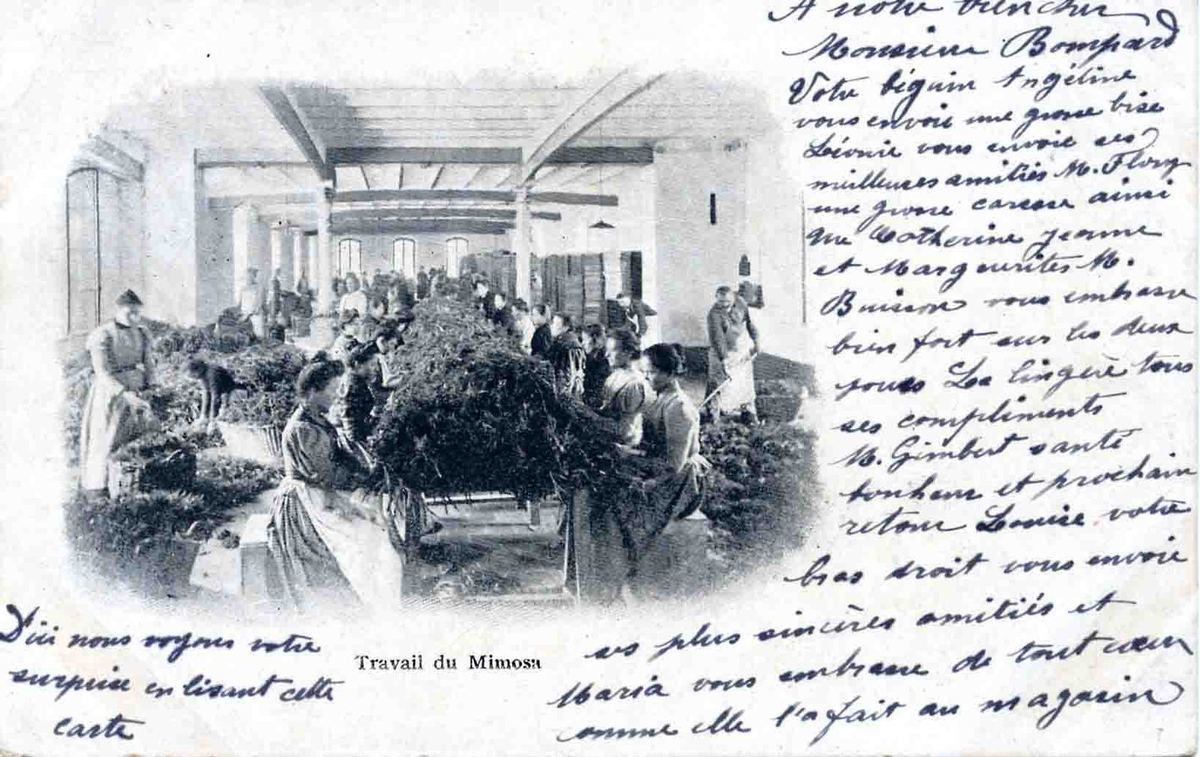 A notre bien cher
Monsieur Bompard
Votre béguin Angéline
vous envoie une grosse bise
Léonie vous envoie ses
meilleuses amitiés M. Flory
une grosse caresse ainsi
que Catherine Jeanne
et Marguerites M.
Buisson vous embrasse
bien fort sur les deux
joues La lingère tous
ses compliments
M. Gimbert santé
bonheur et prochain
retour Louise votre
bras droit vous envoie
ses plus sincères amitiés et
Maria vous embrasse de tout cœur
comme elle l'a fait au magasin
D'ici nous voyons votre
surprise en lisant cette
carte
Travail du Mimosa